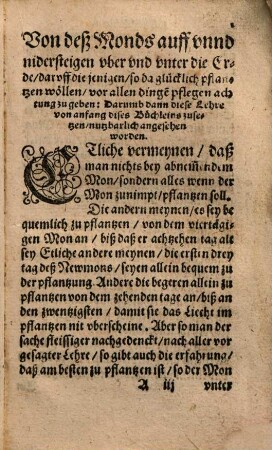 Von deß Monds auff vnnd
nidersteigen vber vnd vnter die Er-
de/daruff die jenigen/so da glücklich pflan-
tzen wöllen/vor allen dingē pflegen ach
tung zu geben: Darumb dann diese Lehre
von anfang dises Büchleins zuse-
tzen/nutzbarlich angesehen
worden.
ETliche vermeynen/daß
man nichts bey abnemēdem
Mon/sondern alles wenn der
Mon zunimpt/pflantzen soll.
Die andern meynen/es sey be
quemlich zu pflantzen/von dem viertägi-
gen Mon an/biß daß er achtzehen tag alt
sey Etliche andere meynen/die ersten drey
tag deß Newmons/seyen allein bequem zu
der pflantzung. Andere die begeren allein zu
pflantzen von dem zehenden tage an/biß an
den zwentzigsten/damit sie das Liecht im
pflantzen nit vberscheine. Aber so man der
sache fleissiger nachgedenckt/nach aller vor
gesagter Lehre/so gibt auch die erfahrung/
daß am besten zu pflantzen ist/so der Mon
A iij vnter